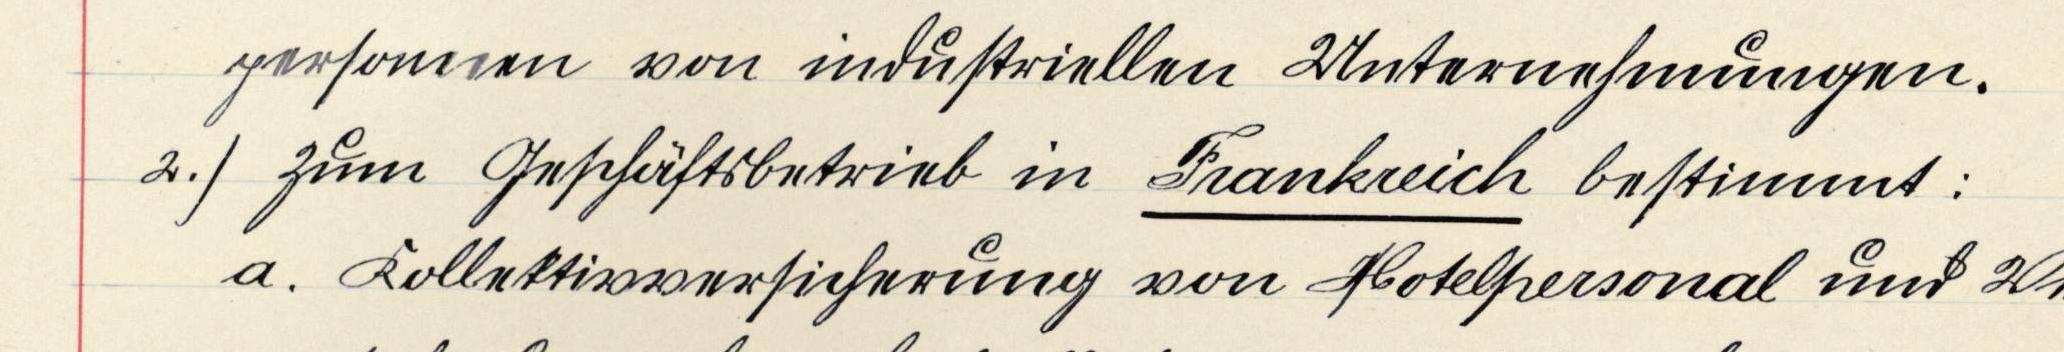 personen von industriellen Unternehmungen.
2.) Zum Geschäftsbetrieb in Frankreich bestimmt:
a. Kollektivversicherung von Hotelpersonal und